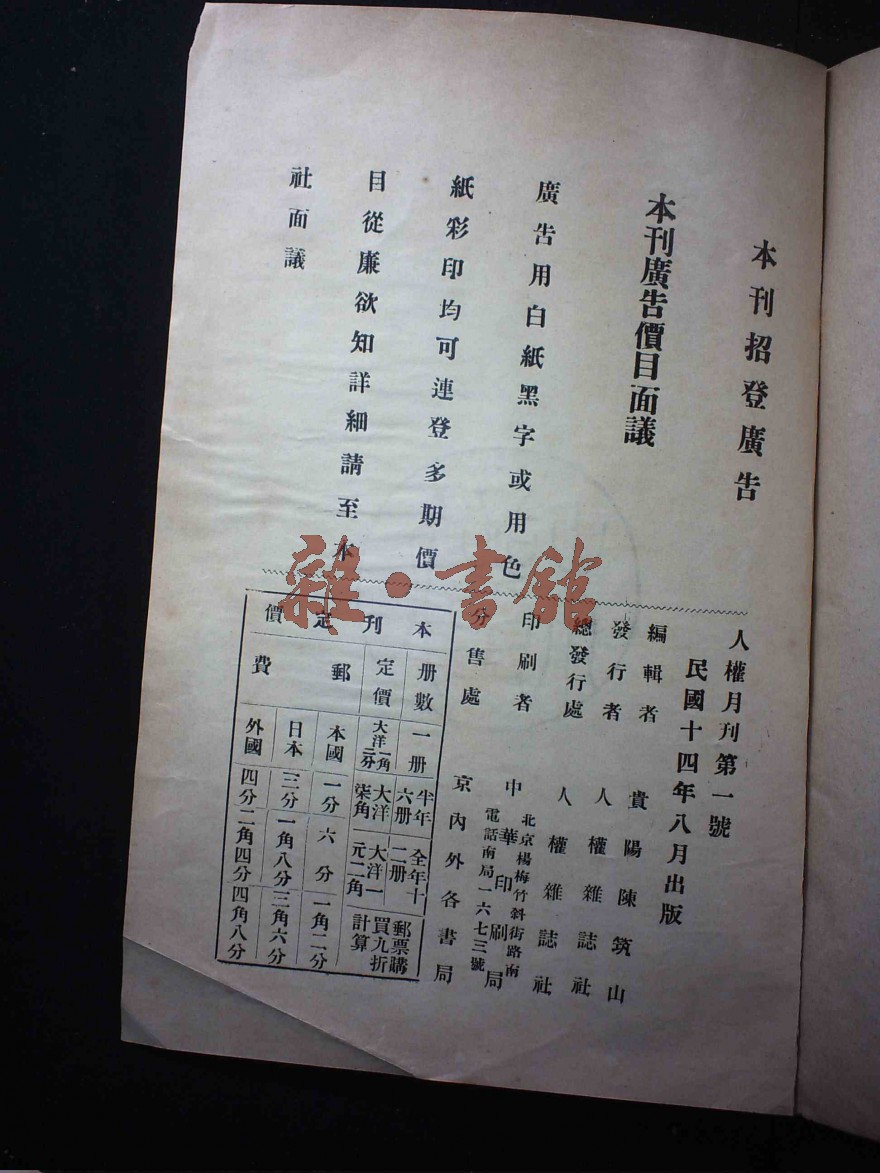 本刊招登廣告
本刊廣告價目面議
廣告用白紙黑字或用色
紙彩印均可連登多期價
目從廉欲知詳細請至本
社面議
人權月刊第一號
民國十四年八月出版
編輯者 貴陽陳筑山
發行者 人權雜誌社
總發行處 人權雜誌社
印刷者 中華印刷局
北京楊梅竹斜街路南
電話南局一六七三號
分售處 京內外各書局
本刊定價
册數 一册 半年六册 全年十二册 郵票購買九折計算
定價 大洋一角二分 大洋柒角 大洋一元二角
郵費
本國 一分 六分 一角二分
日本 三分 一角八分 三角六分
外國 四分 二角四分 四角八分
雜·書館